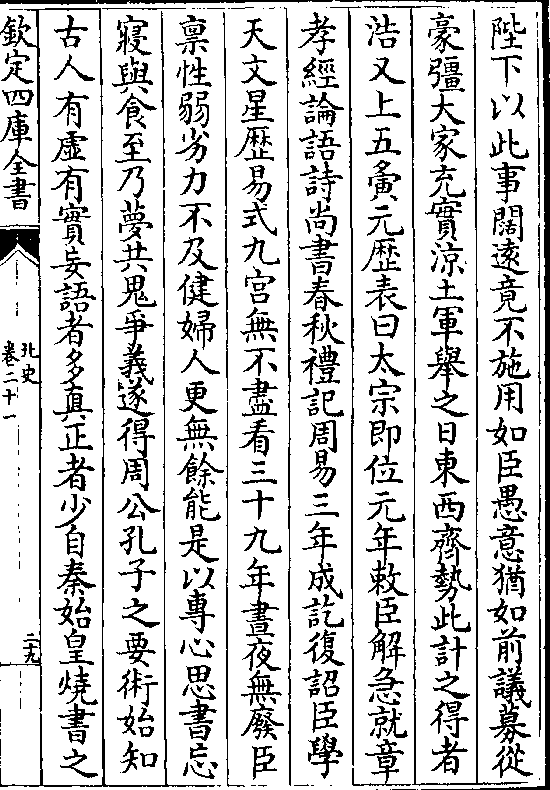 陛下以此事闊遠竟不施用如臣愚意猶如前議募從
豪彊大家充實涼土軍舉之日東西齊勢此計之得者
浩又上五寅元歴表曰太宗即位元年敕臣解急就章
孝經論語詩尚書春秋禮記周易三年成訖復詔臣學
天文星歴易式九宫無不盡看三十九年晝夜無廢臣
禀性弱劣力不及健婦人更無餘能是以專心思書忘
寢與食至乃夢共鬼爭義遂得周公孔子之要術始知
古人有虚有實妄語者多真正者少自秦始皇燒書之
欽定四庫全書
北史
卷二十一
二十九